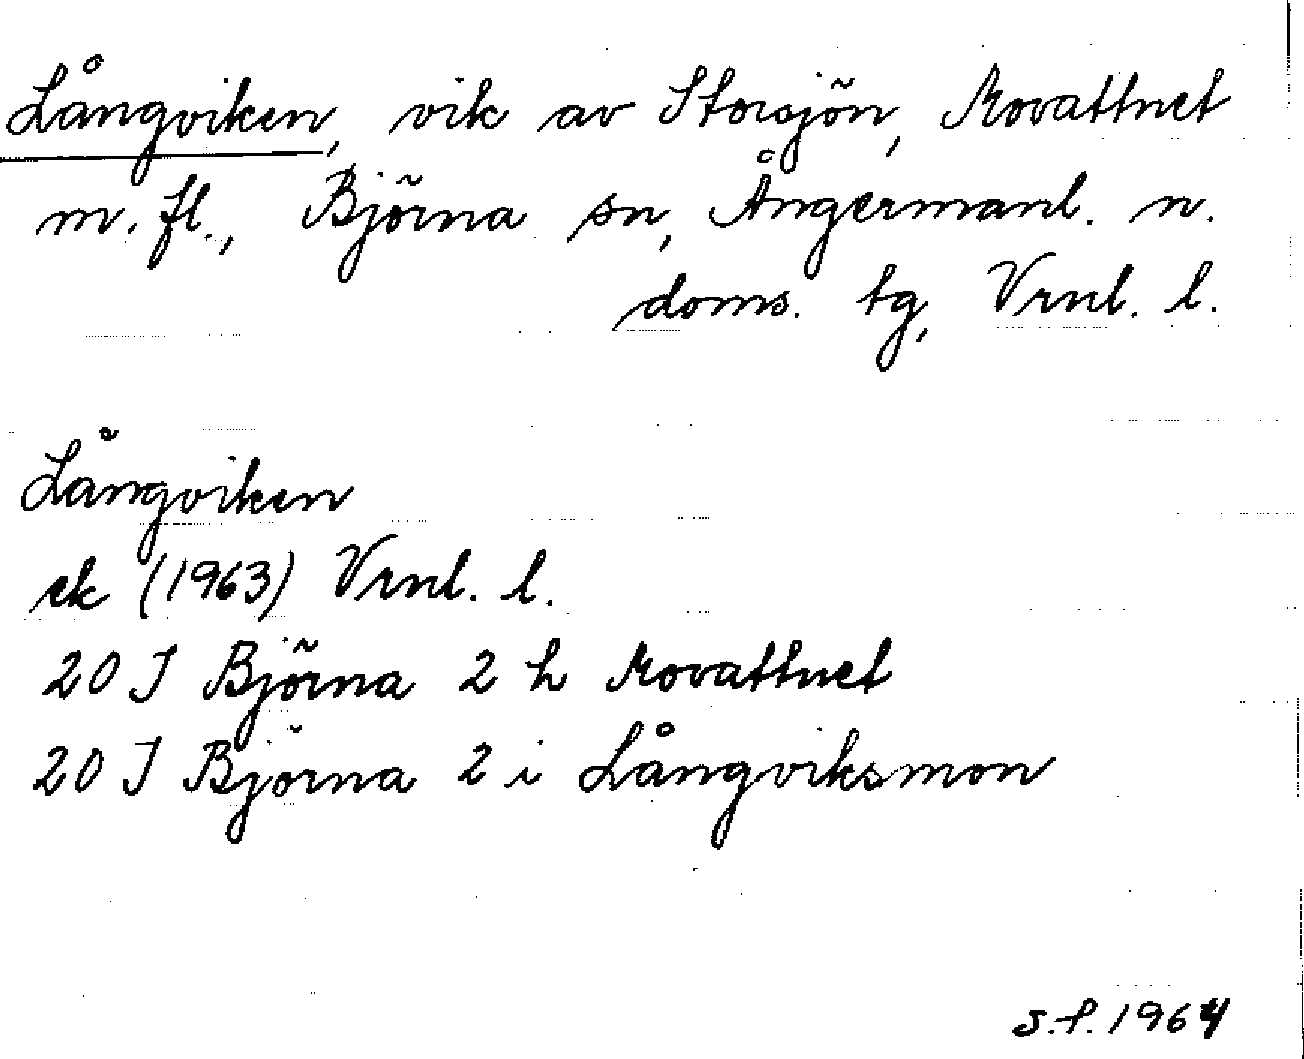 Långviken, vik av Storsjön, Movattnet
m. fl., Björna sn, Ångermanl. n.
doms. tg, Vrnl. l.
Långviken
ek (1963) Vrnl. l.
20 J Björna 2 h Movattnet
20 J Björna 2 i Långviksmon
S.f. 1964